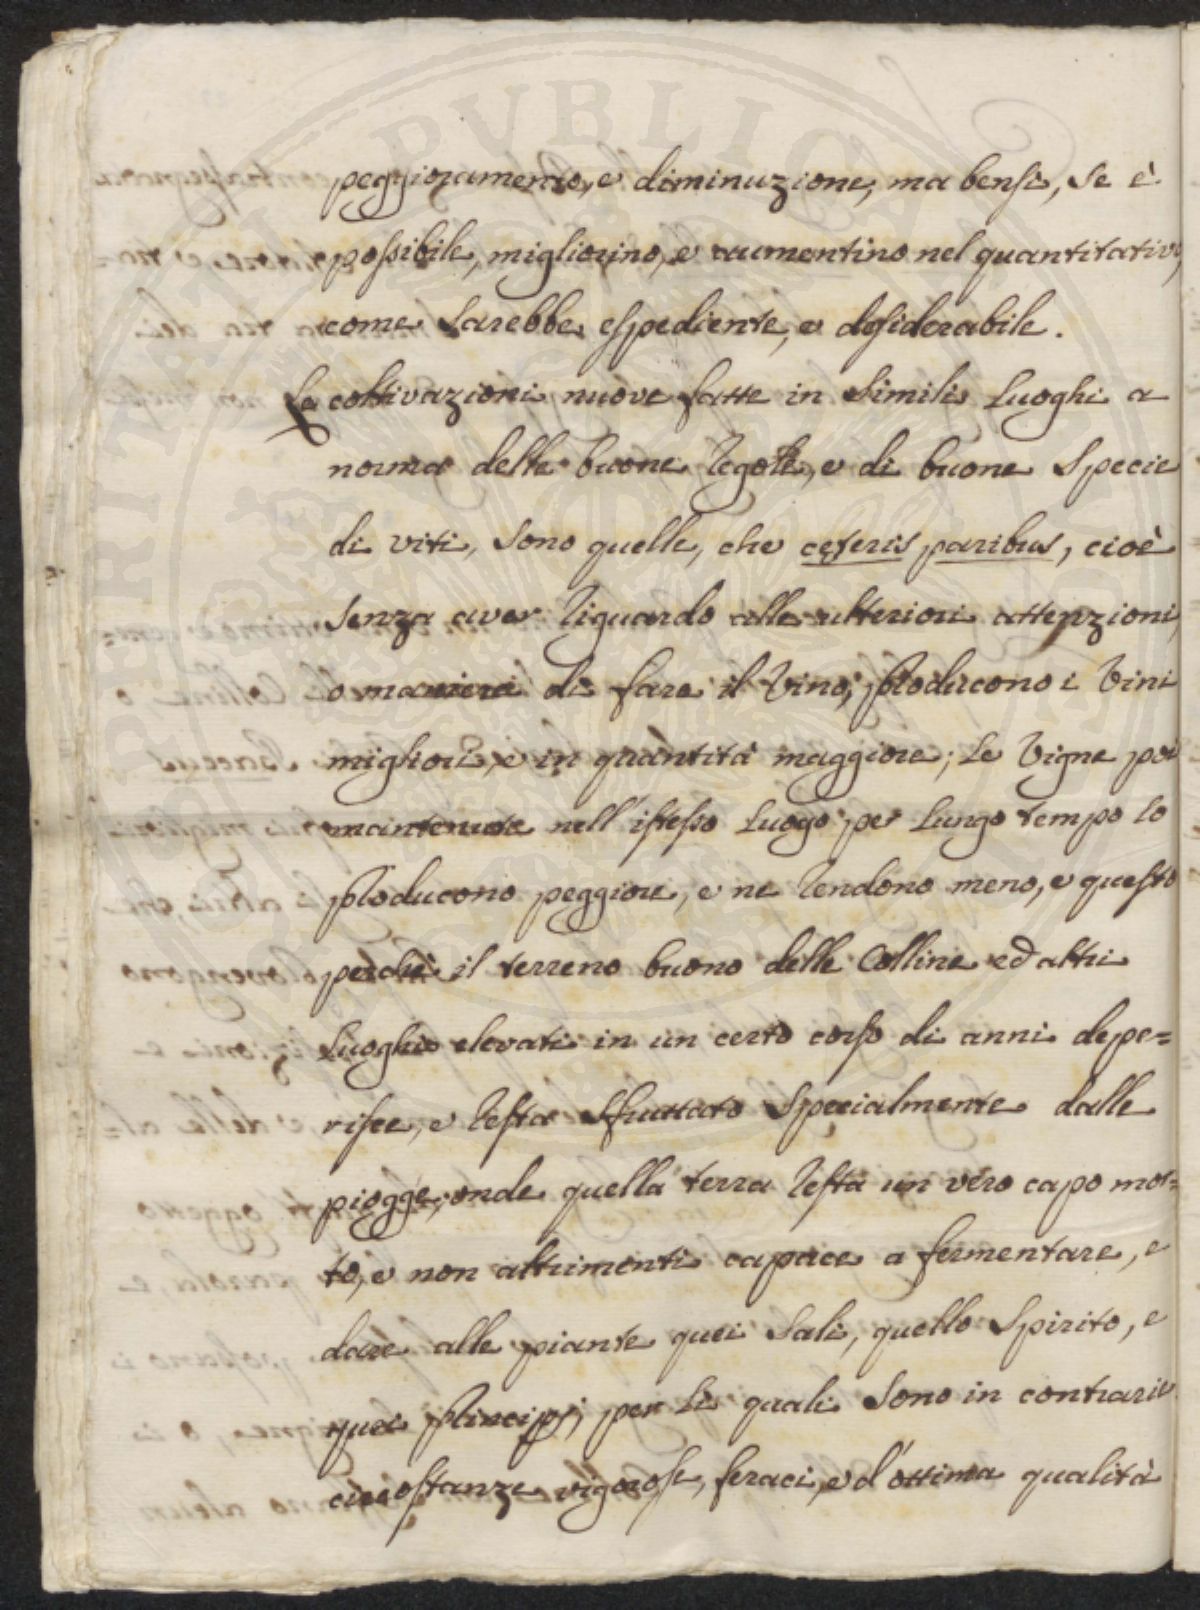 peggioramento, e diminuzione, ma bensì, se è
possibile, migliorino, e aumentino nel quantitativo,
come sarebbe espediente, e desiderabile.
Le coltivazioni nuove fatte in simili Luoghi a
norma delle buone regole, e di buone specie
di viti, sono quelle, che ceteris paribus, cioè
senza aver riguardo alle ulteriori attenzioni,
o maniera di fare il Vino, producono i Vini
migliori, e in quantità maggiore; Le Vigne poi
mantenute nell'istesso Luogo per Lungo tempo lo
producono peggiore, e ne rendono meno, e questo
perchè il terreno buono delle Colline ed altri
Luoghi elevati in un certo corso di anni depe=
risce, e resta sfruttato specialmente dalle
piogge, onde quella terra resta un vero capo mor=
to, e non altrimenti capace a fermentare, e
dare alle piante quei Sali, quello Spirito, e
quei Principj, per Li quali sono in contrarie
circostanze vigorose, feraci, e d'ottima qualità